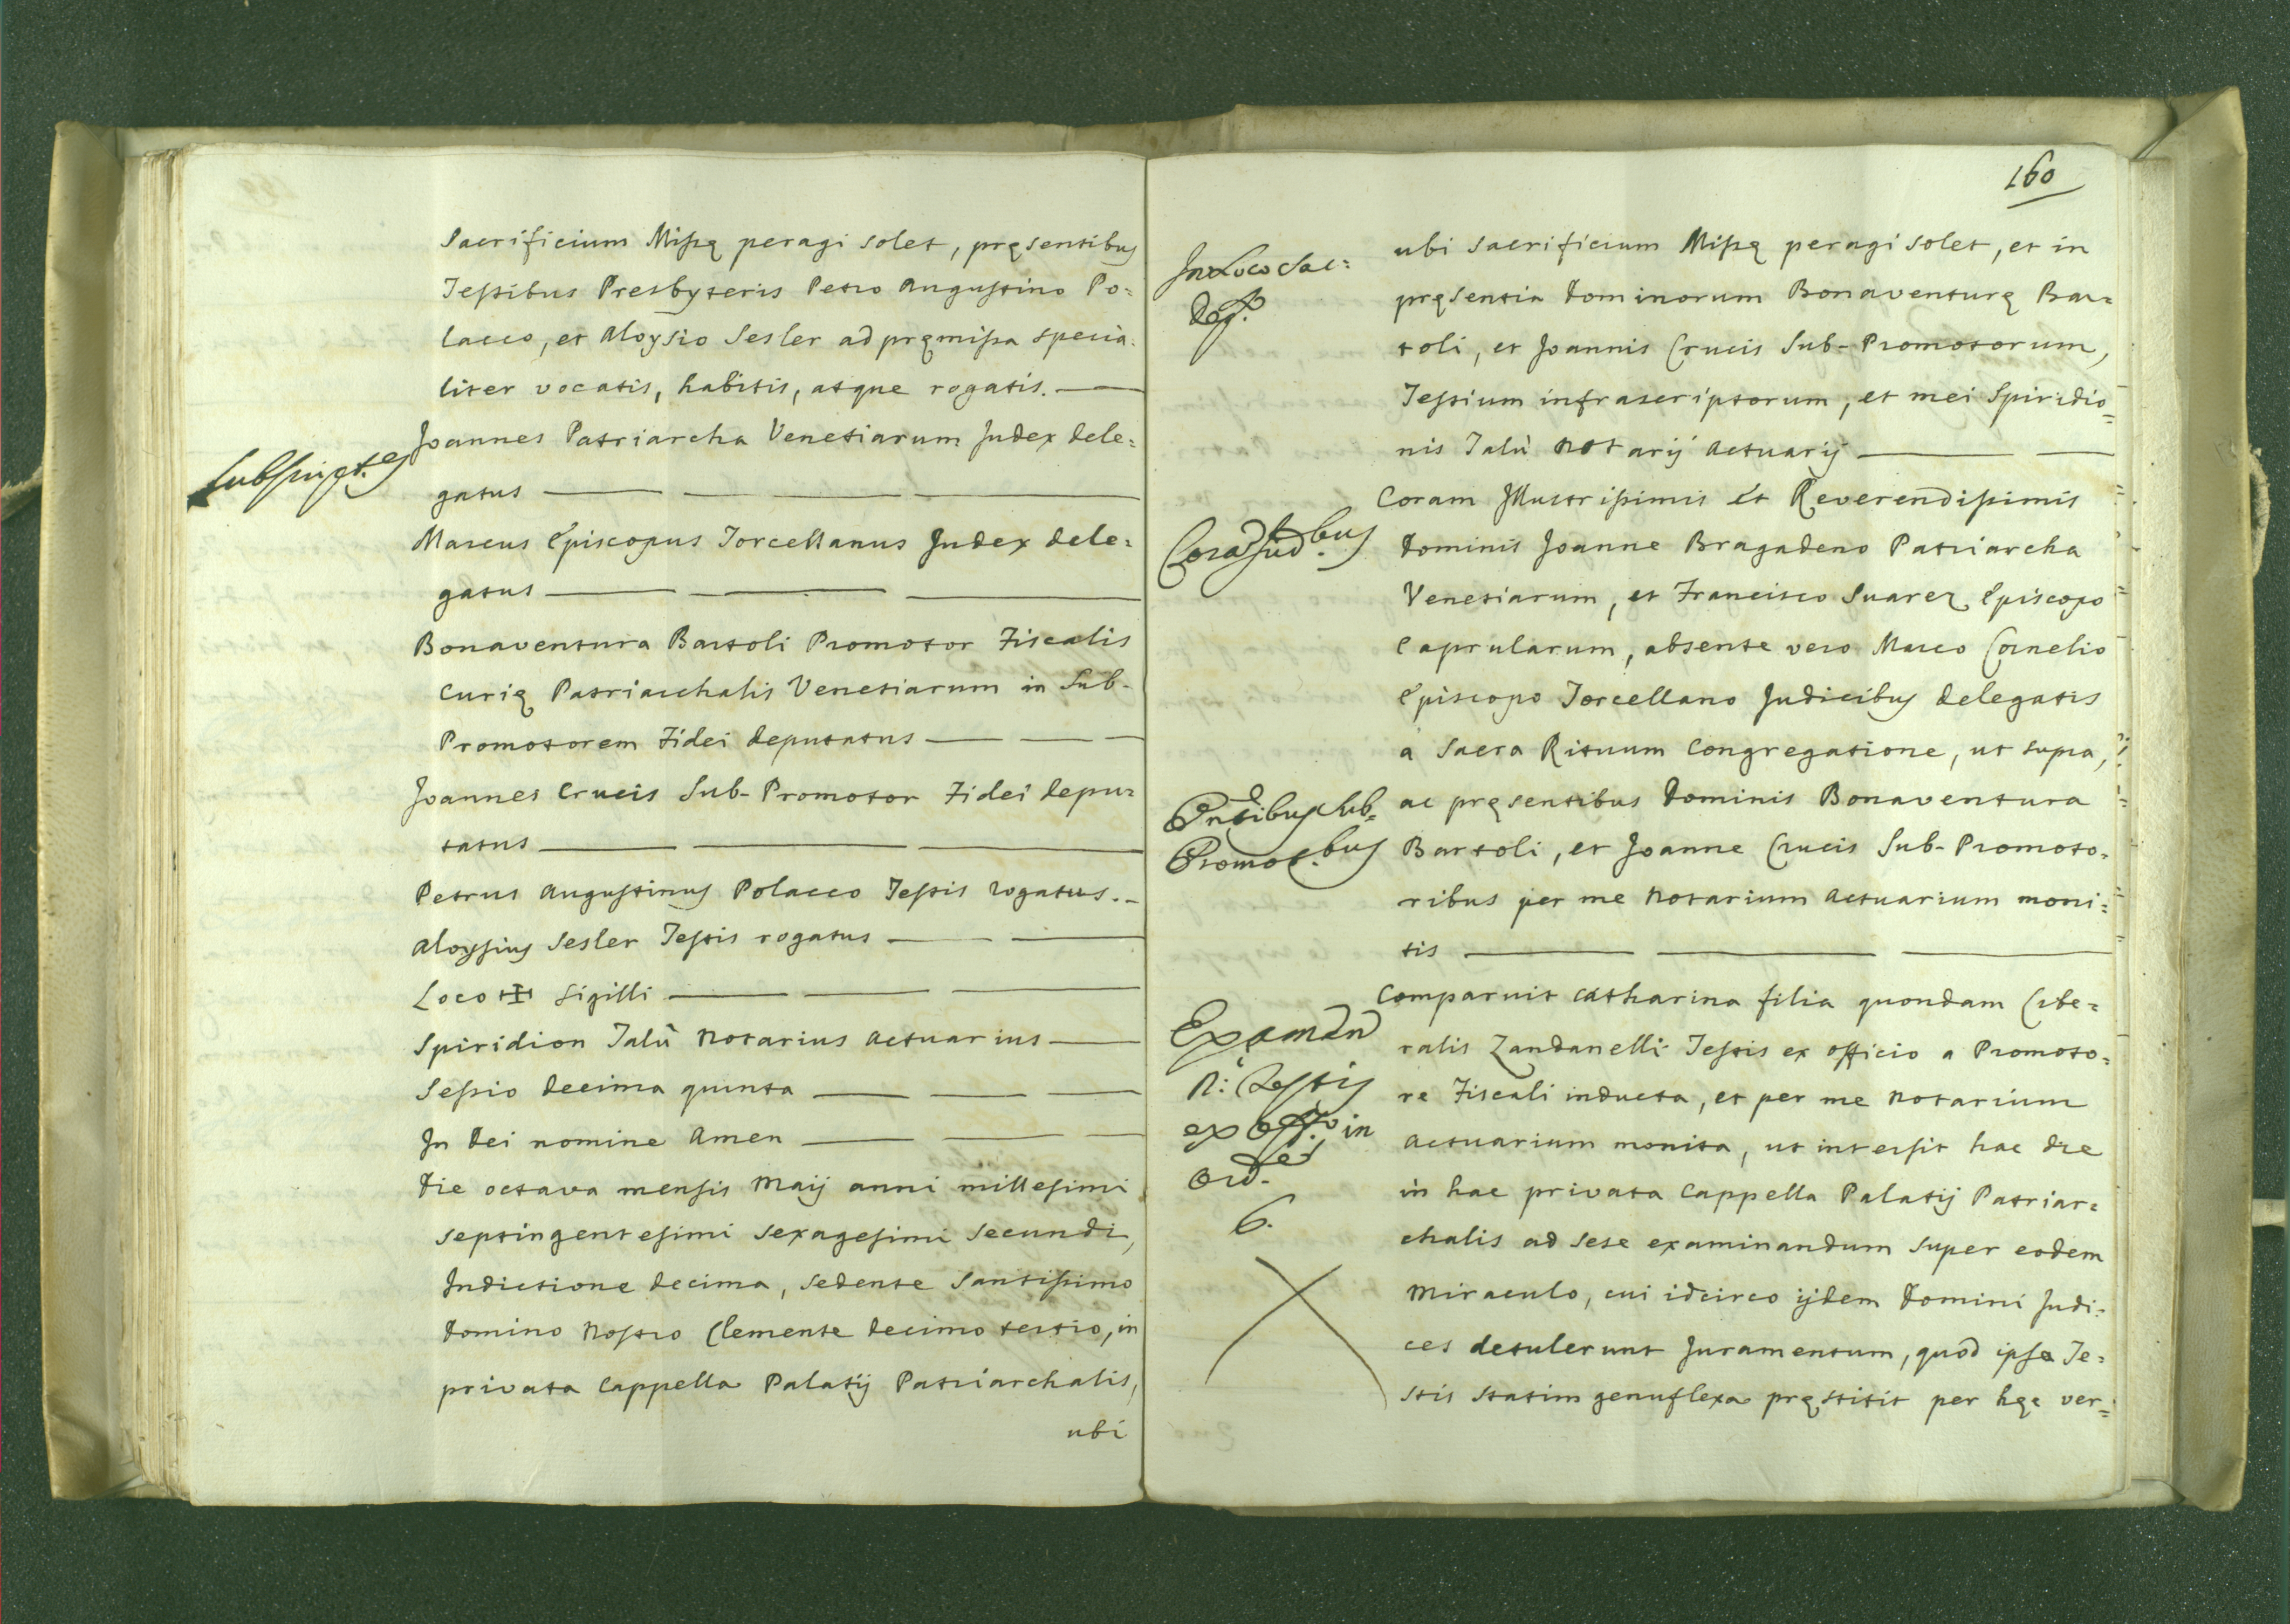 Sacrificium Missę peragi solet, pręsentibus
Testibus Presbyteris Petro Augustino Po=
lacco, et Aloysio Sesler ad pręmissa specia=
liter vocatis, habitis, atque rogatis.
Joannes Patriarcha Venetiarum Judex dele=
gatus
Marcus Episcopus Torcellanus Judex dele=
gatus
Bonaventura Bartoli Promotor Fiscalis
Curię Patriarchalis Venetiarum in Sub-
Promotorem Fidei deputatus
Joannes Crucis Sub-Promotor Fidei depu=
tatus
Petrus Augustinus Polacco Testis rogatus.
Aloysius Sesler Testis rogatus
Loco ✠ Sigilli
Spiridion Talù Notarius Actuarius
Sessio decima quinta
In Dei nomine Amen
Die octava mensis Maij anni millesimi
septingentesimi sexagesimi secundi,
Indictione decima, sedente Santissimo
Domino Nostro Clemente decimo tertio, in
privata Cappella Palatij Patriarchalis,
ubi
160
In Loco Sac=
ubi Sacrificium Missę peragi solet, et in
pręsentia Dominorum Bonaventurę Bar=
toli, et Joannis Crucis Sub-Promotorum,
Testium infrascriptorum, et mei Spiridio=
nis Talù Notarij Actuarij
Corā Jud.bus
Coram Illustrissimis et Reverendissimis
Dominis Joanne Bragadeno Patriarcha
Venetiarum, et Francisco Suarez Episcopo
Caprularum, absente vero Marco Cornelio
Episcopo Torcellano Judicibus delegatis
a Sacra Rituum Congregatione, ut supra,
Pntibus Sub=
Promot.bus
ac pręsentibus Dominis Bonaventura
Bartoli, et Joanne Crucis Sub-Promoto=
ribus per me Notarium Actuarium moni=
tis
Examen
Testis
ex Off.o in
Ord.e
6.
Comparuit Catharina filia quondam Libe=
ralis Zandanelli Testis ex officio a Promoto=
re Fiscali inducta, et per me Notarium
Actuarium monita, ut intersit hac die
in hac privata Cappella Palatij Patriar=
chalis ad sese examinandum super eodem
Miraculo, cui idcirco ijdem Domini Judi=
ces detulerunt Juramentum, quod ipsa Te=
stis statim genuflexa pręstitit per hęc ver=